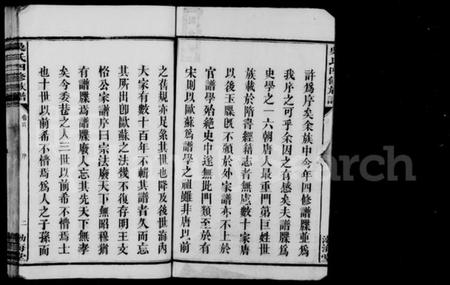 許為序矣余族中今年四修譜牒重為
我序之可乎余因之有感矣夫譜牒為
史學之一六朝唐人最重門第巨姓世
族載於隋書經籍志者無慮數十家唐
以後玉牒既不頒於外家譜亦不上於
官譜學始絕史中遂無此門類至於有
宋則以歐蘇為譜學之祖雖非唐以前
之舊規亦足象其世也降及後世海內
大家有數十百年不輯其譜者久而忘
其所出即歐蘇之法幾不復存明王文
恪公家譜序曰宗法廢天下無昭穆猶
有譜牒焉譜牒廢人忘其先天下無孝
矣今委巷之人三世以前希不懵焉士
也十世以前希不懵焉為人之子孫而
吳氏四修族譜
卷首
序
二